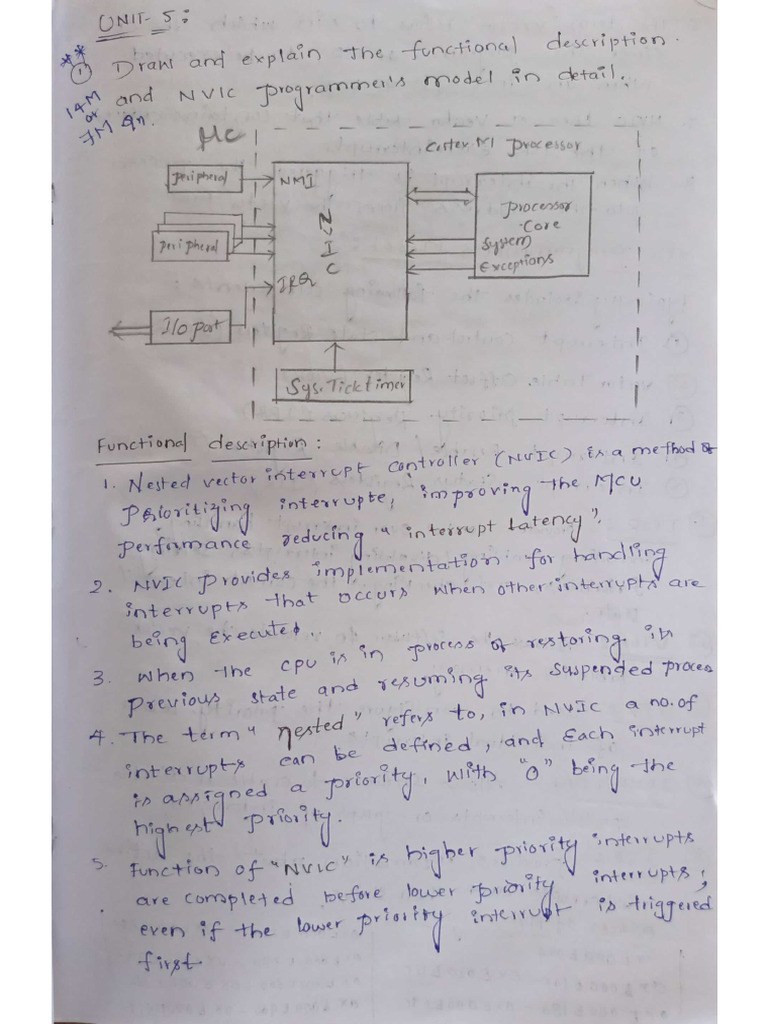 UNIT-5:
** ① Draw and explain the functional description.
14M or 7M Qn. and NVIC programmer's model in detail.
MC
Cortex M1 processor
peripheral
NMI
NVIC
processor
Core
System
Exceptions
peripheral
IRQ
I/O port
Sys.Tick timer
Functional description:
1. Nested vector interrupt controller (NVIC) is a method of
prioritizing interrupte, improving the MCU
performance reducing "interrupt latency".
2. NVIC provides implementation for handling
interrupts that occurs when other interrupts are
being executed.
3. When the cpu is in process of restoring its
previous state and resuming its suspended process
4. The term "nested" refers to, in NVIC a no. of
interrupts can be defined, and Each interrupt
is assigned a priority, with "0" being the
highest priority.
5. Function of "NVIC" is higher priority interrupts
are completed before lower priority interrupts,
even if the lower priority interrupt is triggered
first